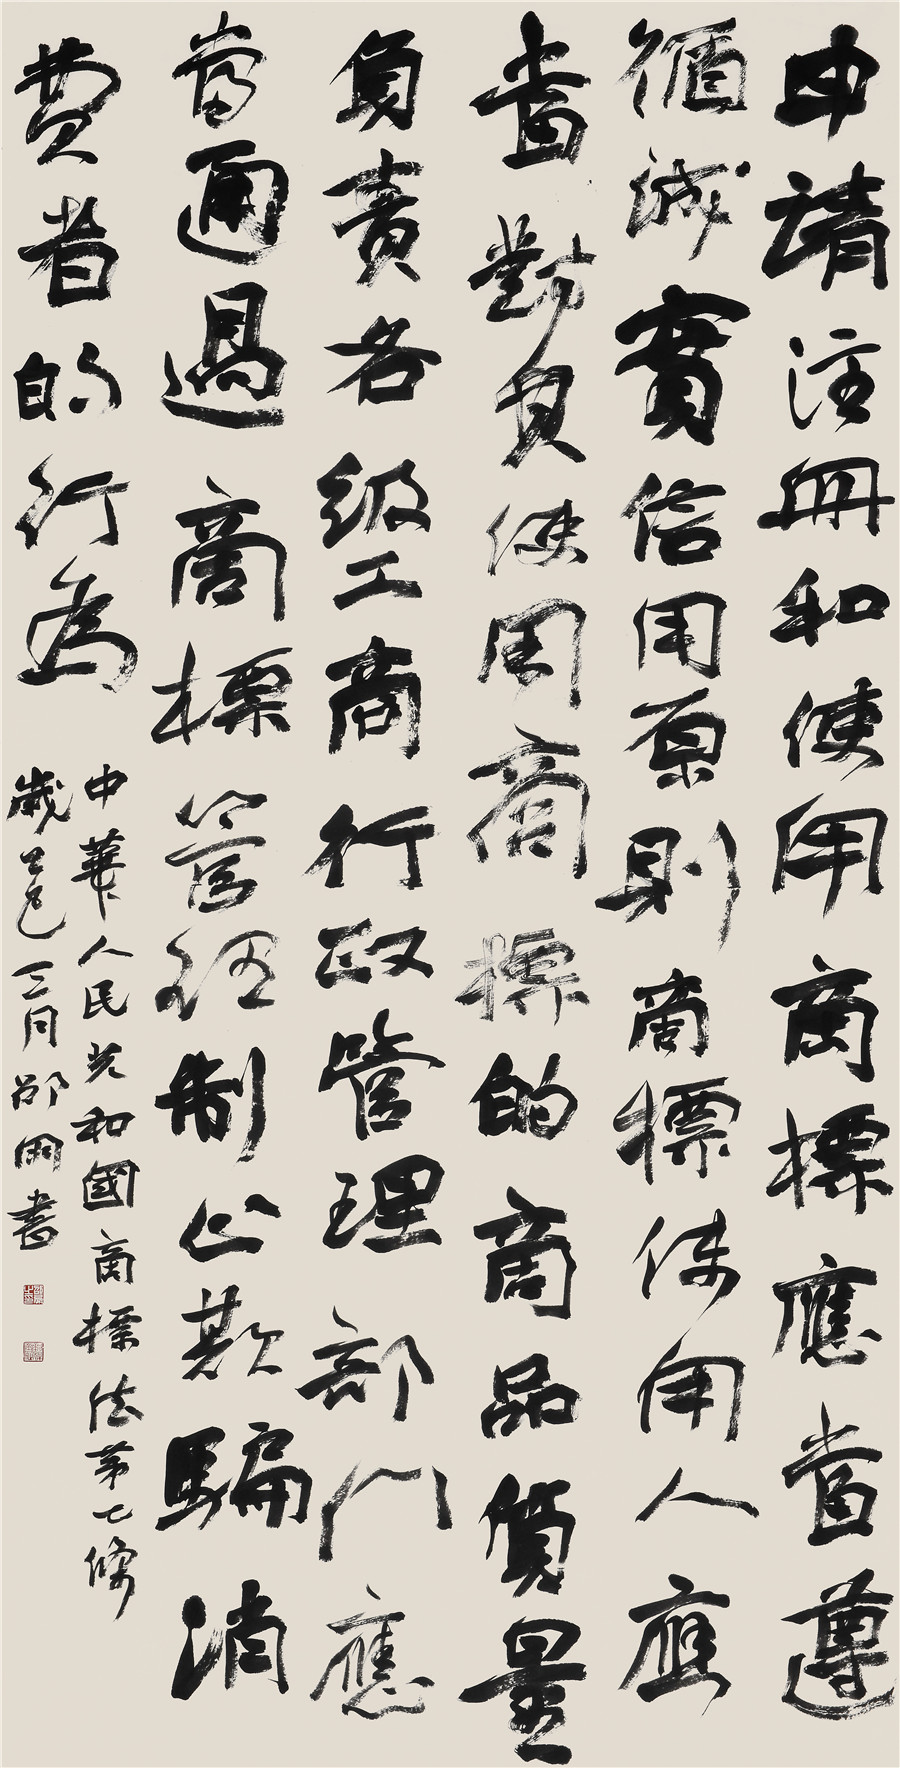 申請注冊和使用商標應當遵
循誠實信用原則商標使用人應
當對其使用商標的商品質量
負責各級工商行政管理部門應
當通過商標管理制止欺騙消
費者的行為
中華人民共和國商標法第七條
歲乙巳三月邵書